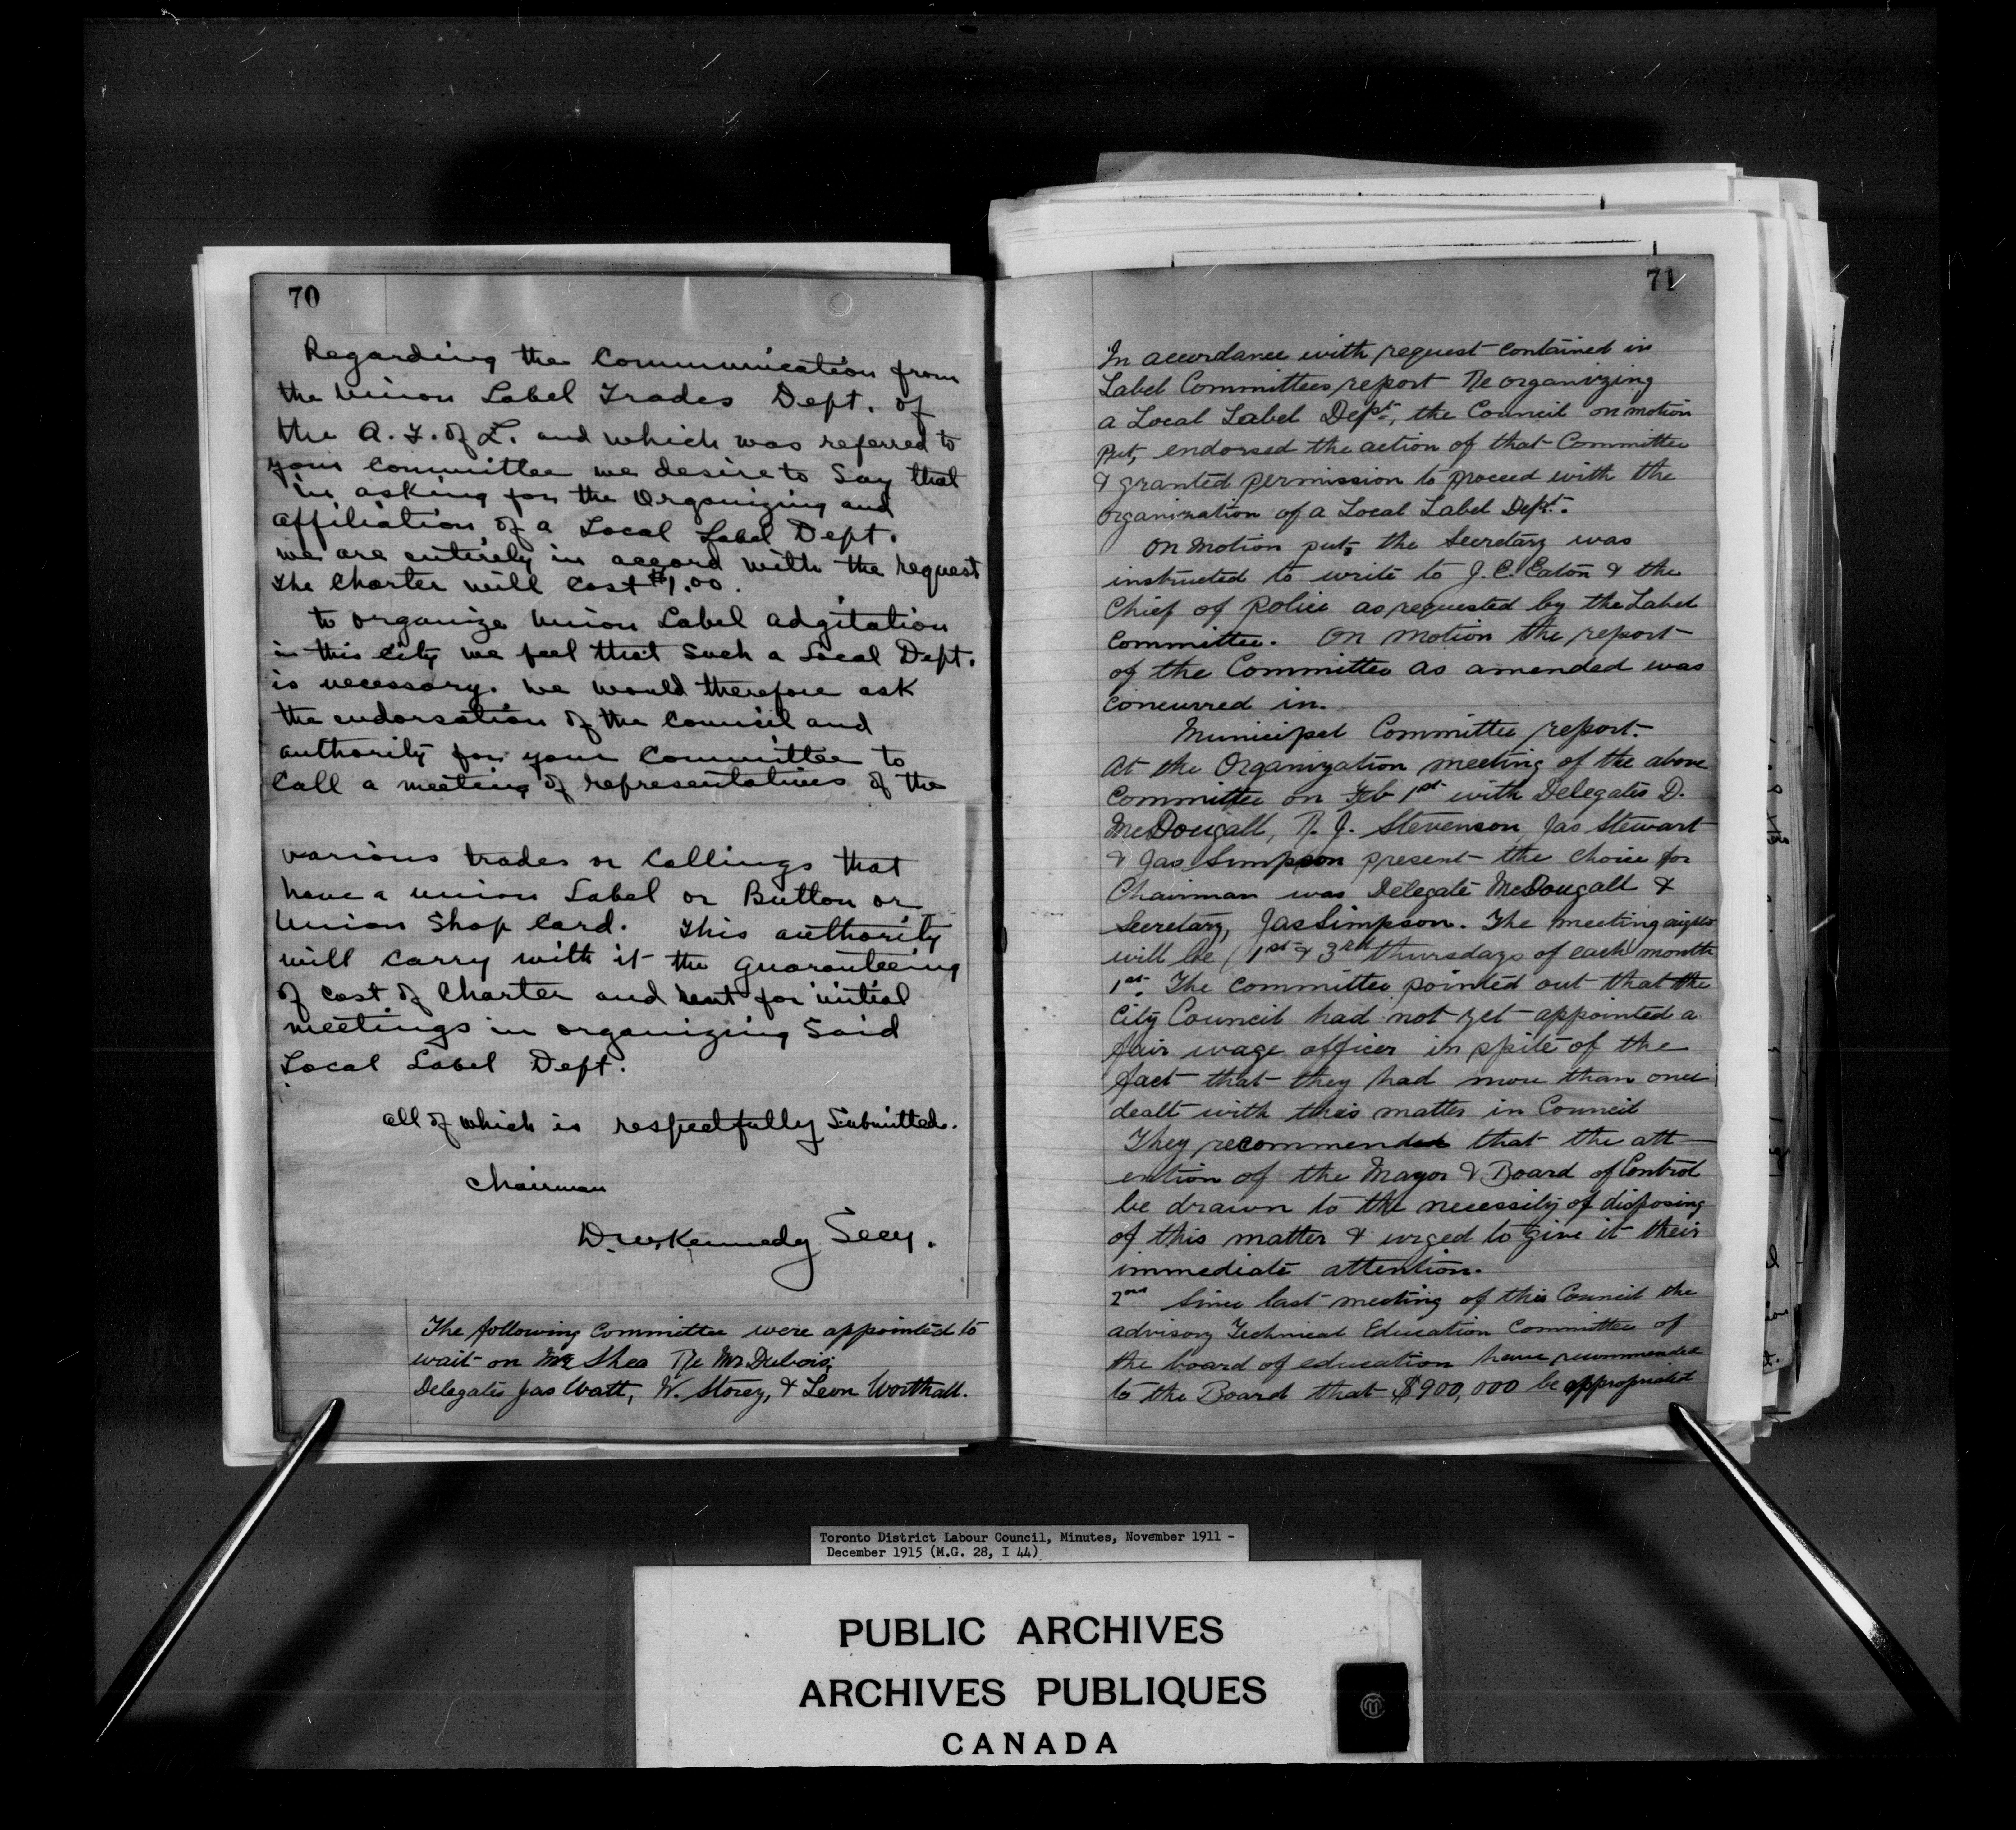 70
Regarding the Communication from
the Union Label Trades Dept. of
the A. F. of L. and which was referred to
your Committee we desire to say that
in asking for the Organizing and
affiliation of a Local Label Dept.
we are entirely in accord with the request
The Charter will cost $1.00.
to organize Union Label adgitation
in this City we feel that such a Local Dept.
is necessary. We would therefore ask
the endorsation of the Council and
authority for your Committee to
Call a meeting of representatives of the
various trades or Callings that
have a union Label or Button or
Union Shop Card. This authority
will carry with it the guaranteeing
of cost of Charter and rent for initial
meetings in organizing said
Local Label Dept.
all of which is respectfully Submitted.
Chairman
D.W. Kennedy Secy.
The following Committee were appointed to
wait on Mr Shea Re Mr Dubois;
Delegates Jas Watt, W. Storey, & Leon Worthall.
71
In accordance with request contained in
Label Committees report Re organizing
a Local Label Dept, the Council on motion
put, endorsed the action of that Committee
& granted permission to proceed with the
organization of a Local Label Dept.
On motion put, the Secretary was
instructed to write to J. C. Eaton & the
Chief of Police as requested by the Label
Committee. On motion the report
of the Committee as amended was
concurred in.
Municipal Committee report.
At the Organization meeting of the above
Committee on Feb 1st with Delegates D.
McDougall, R. J. Stevenson, Jas Stewart
& Jas Simpson present the choice for
Chairman was Delegate McDougall &
Secretary, Jas Simpson. The meeting nights
will be 1st & 3rd thursdays of each month
1st. The Committee pointed out that the
City Council had not yet appointed a
fair wage officer in spite of the
fact that they had more than once
dealt with this matter in Council
They recommended that the att
ention of the Mayor & Board of Control
be drawn to the necessity of disposing
of this matter & urged to give it their
immediate attention.
2nd Since last meeting of this Council the
advisory Technical Education Committee of
the board of education have recommended
to the Board that $900,000 be appropriated
Toronto District Labour Council, Minutes, November 1911 -
December 1915 (M.G. 28, I 44)
PUBLIC ARCHIVES
ARCHIVES PUBLIQUES
CANADA